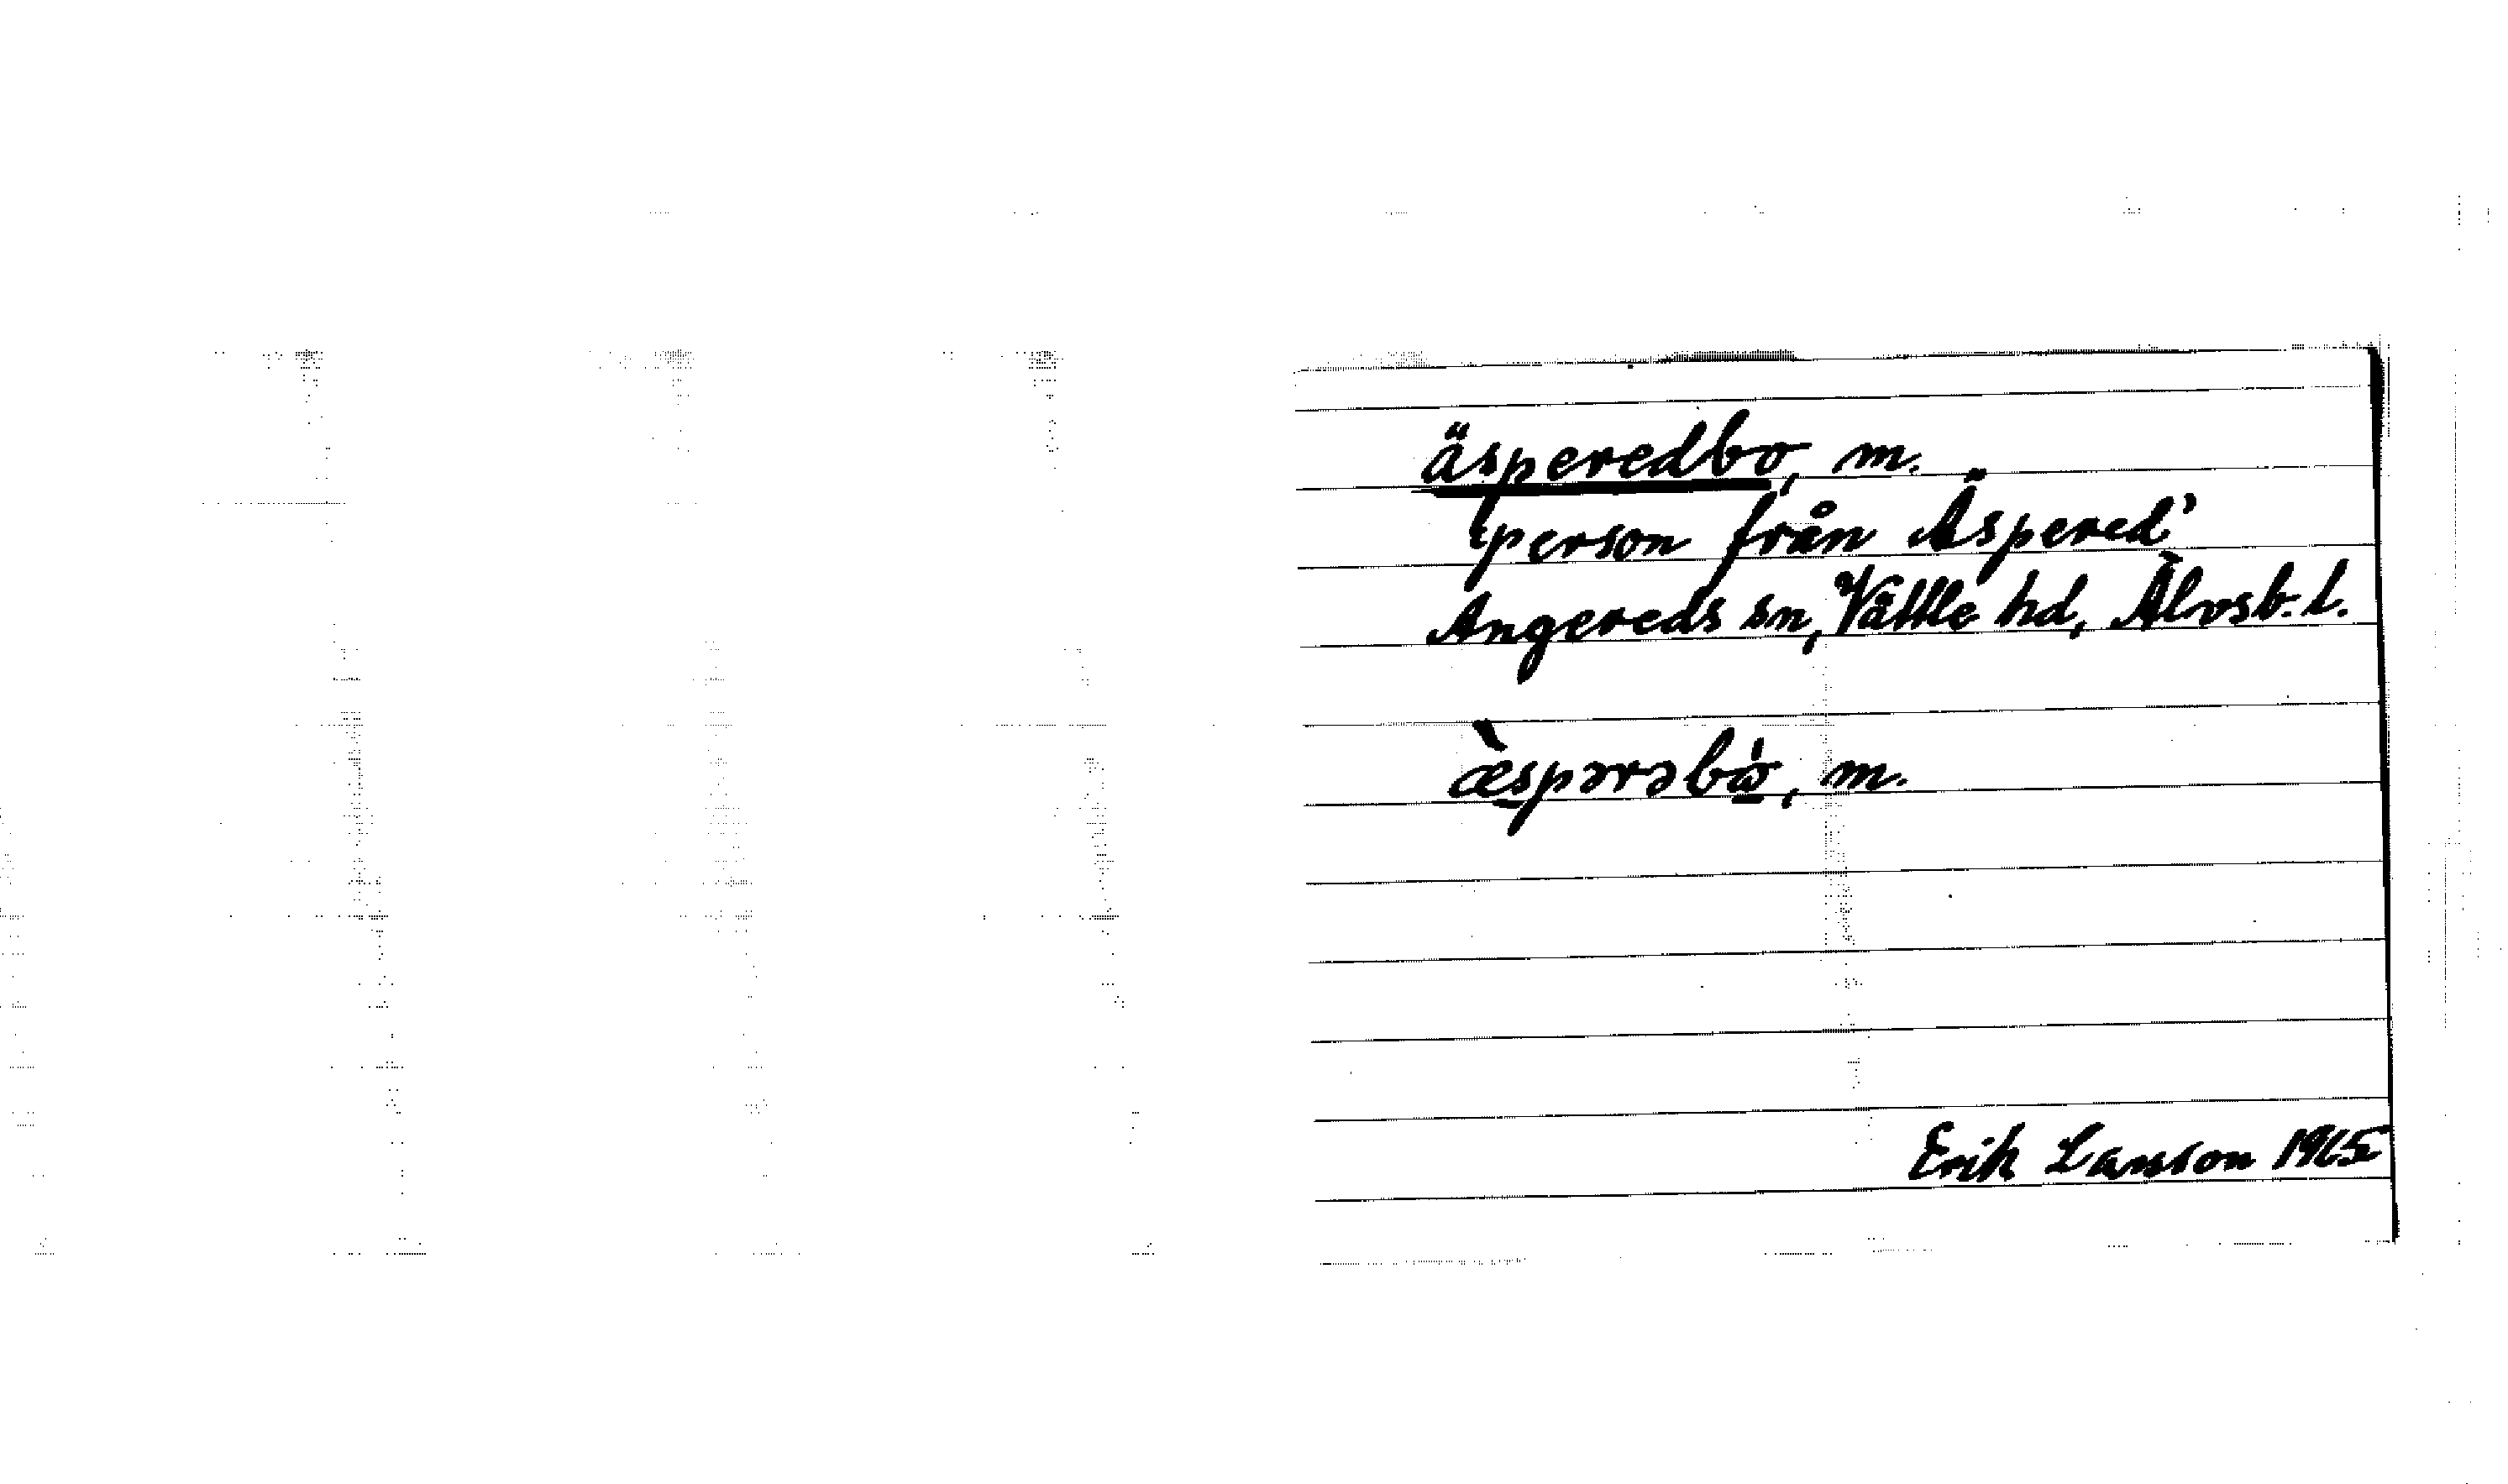 äsperedbo, m.
'person från Äspered'
Angereds sn, Vättle hd, Älvsb. l.
æ̀spərəbὼ, m.
Erik Larsson 1965